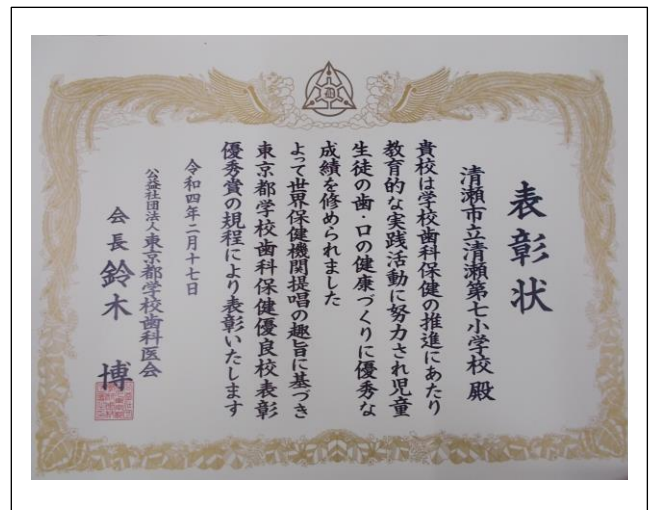 表彰状
清瀬市立清瀬第七小学校 殿
貴校は学校歯科保健の推進にあたり
教育的な実践活動に努力され児童
生徒の歯・口の健康づくりに優秀な
成績を修められました
よって世界保健機関提唱の趣旨に基づき
東京都学校歯科保健優良校表彰
優秀賞の規程により表彰いたします
令和四年二月十七日
公益社団法人東京都学校歯科医会
会長 鈴木 博